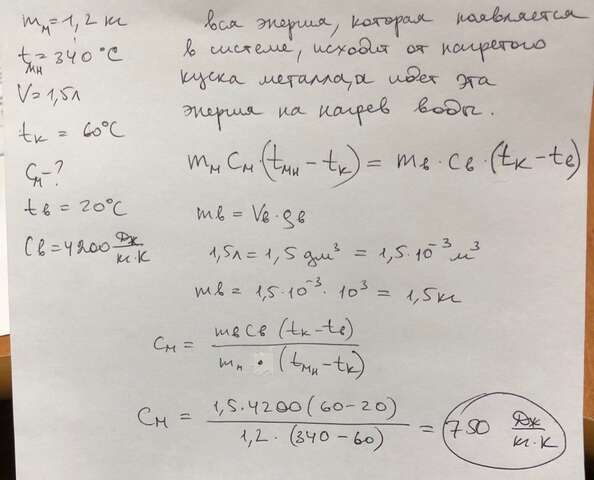 mм = 1,2 кг
tмн = 340 °C
V = 1,5л
tк = 60°C
Cм - ?
tв = 20°C
Cв = 4200 Дж/кг·К
вся энергия, которая появляется
в системе, исходит от нагретого
куска металла, а идет эта
энергия на нагрев воды.
mм Cм · (tмн - tк) = mв · Cв · (tк - tв)
mв = Vв · ρв
1,5л = 1,5 дм³ = 1,5 · 10⁻³ м³
mв = 1,5 · 10⁻³ · 10³ = 1,5 кг
Cм = mв Cв (tк - tв) / mм · (tмн - tк)
Cм = 1,5 · 4200 (60 - 20) / 1,2 · (340 - 60) = 750 Дж/кг·К